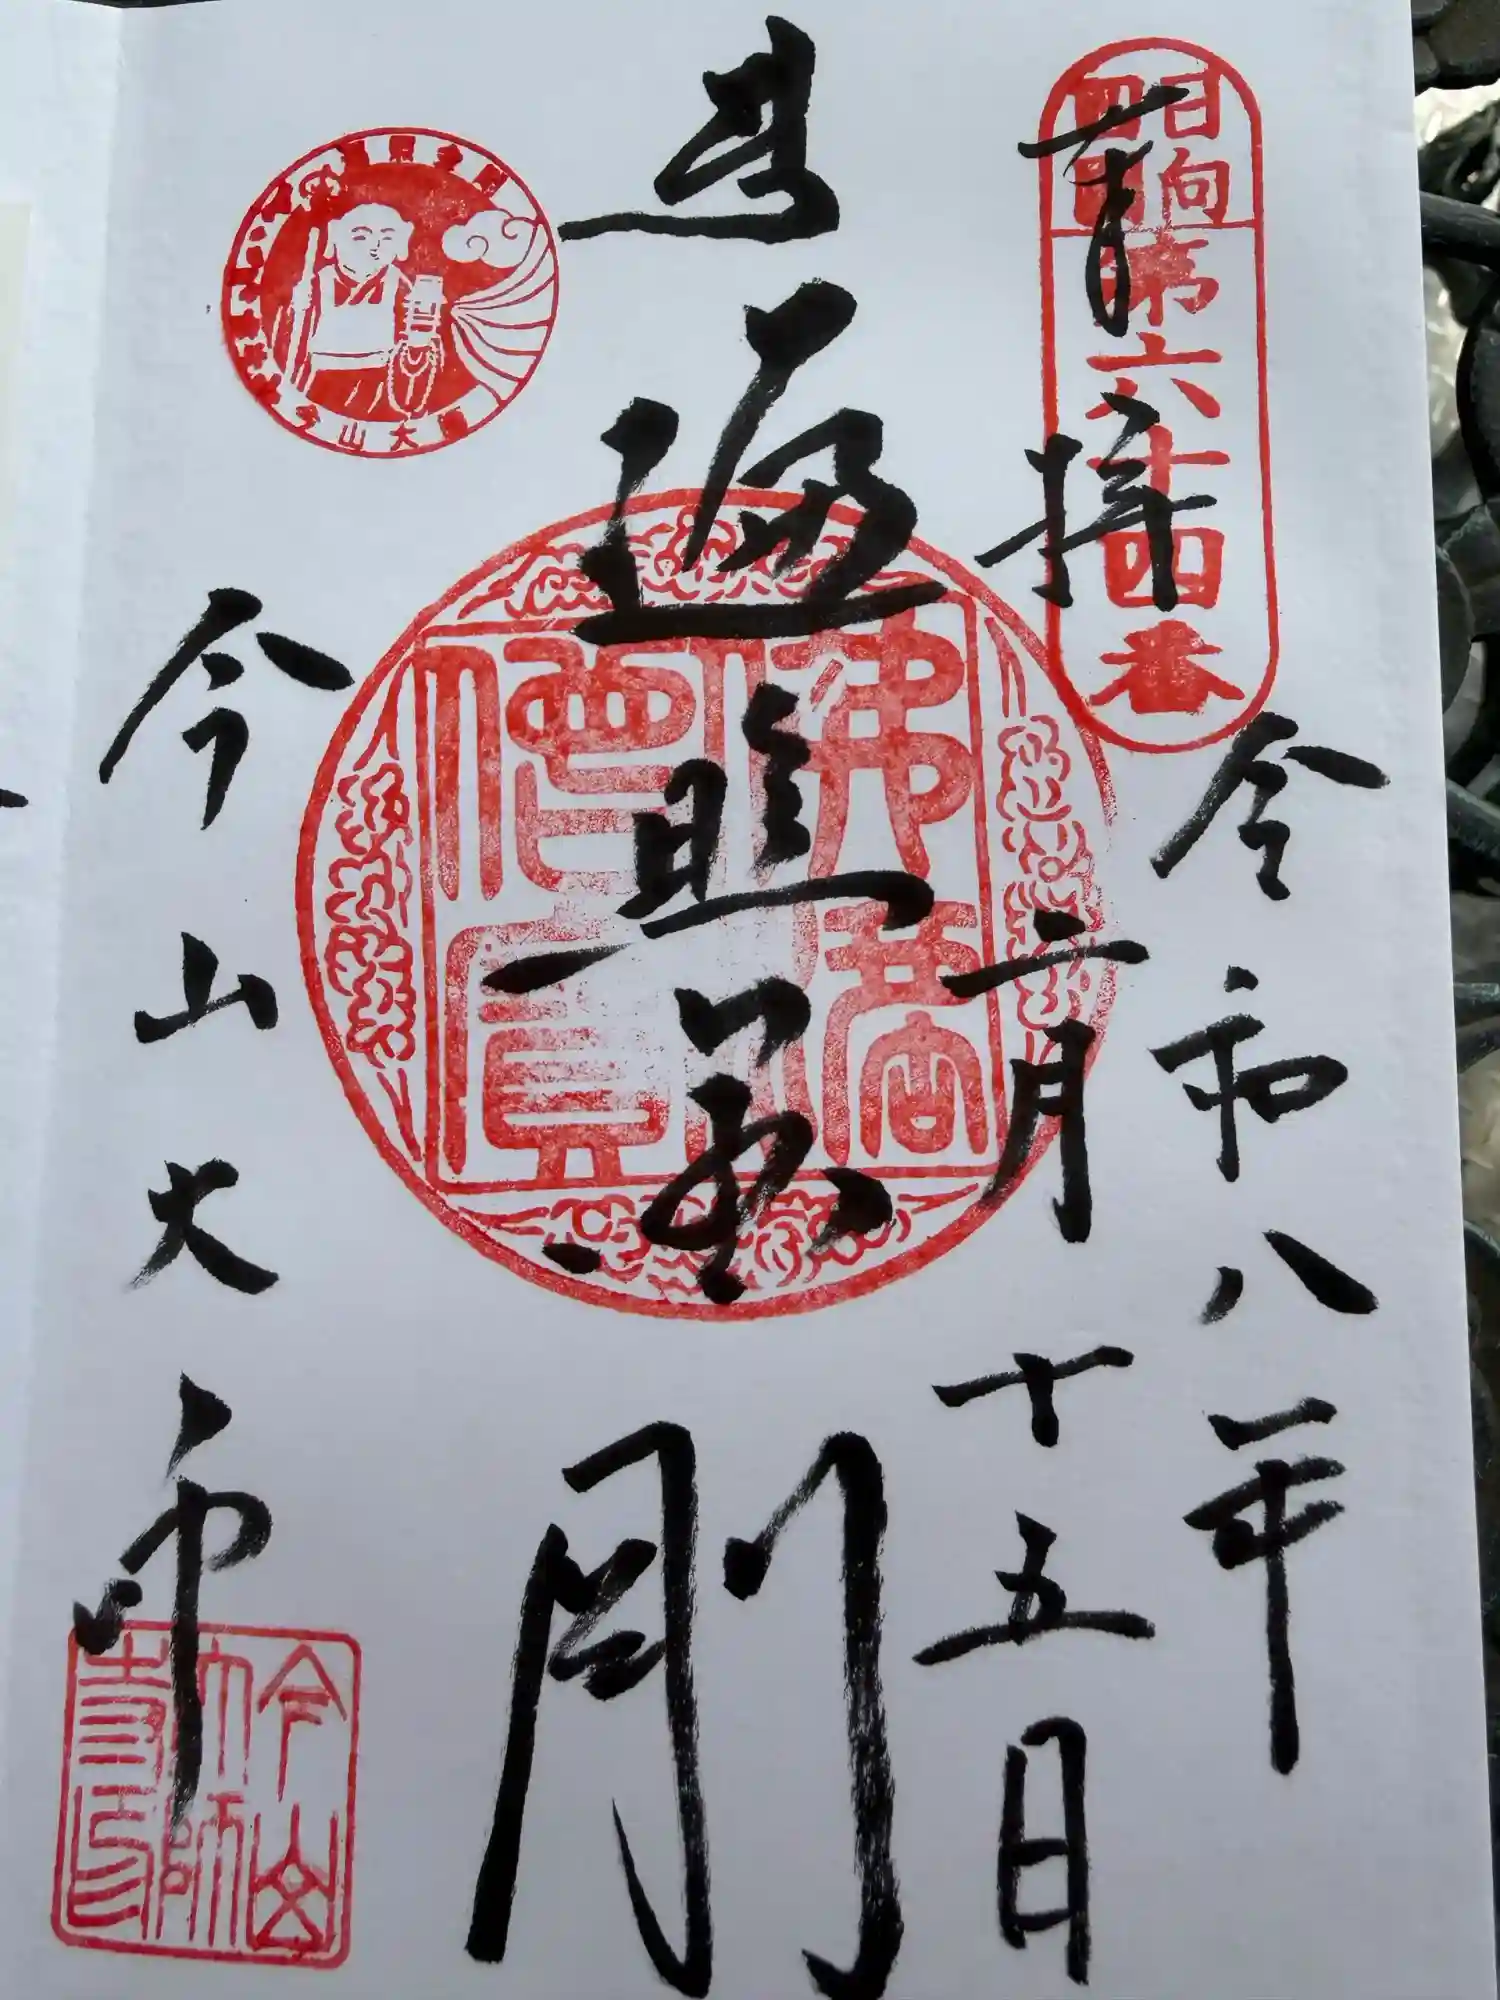 日向
四国
第六十四番
奉拝
令和八年
二月十五日
遍照金剛
佛法僧寶
今山大師
今山大師寺印